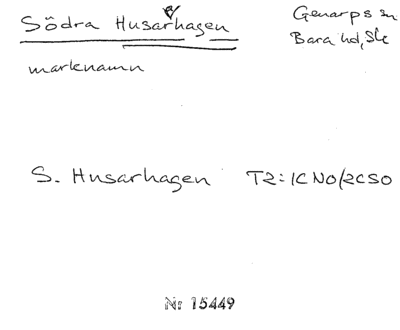 Södra Husarhagen
Genarps sn
Bara hd, Sk
marknamn
S. Husarhagen T2: 1CNO/2CSO
Nr 15449